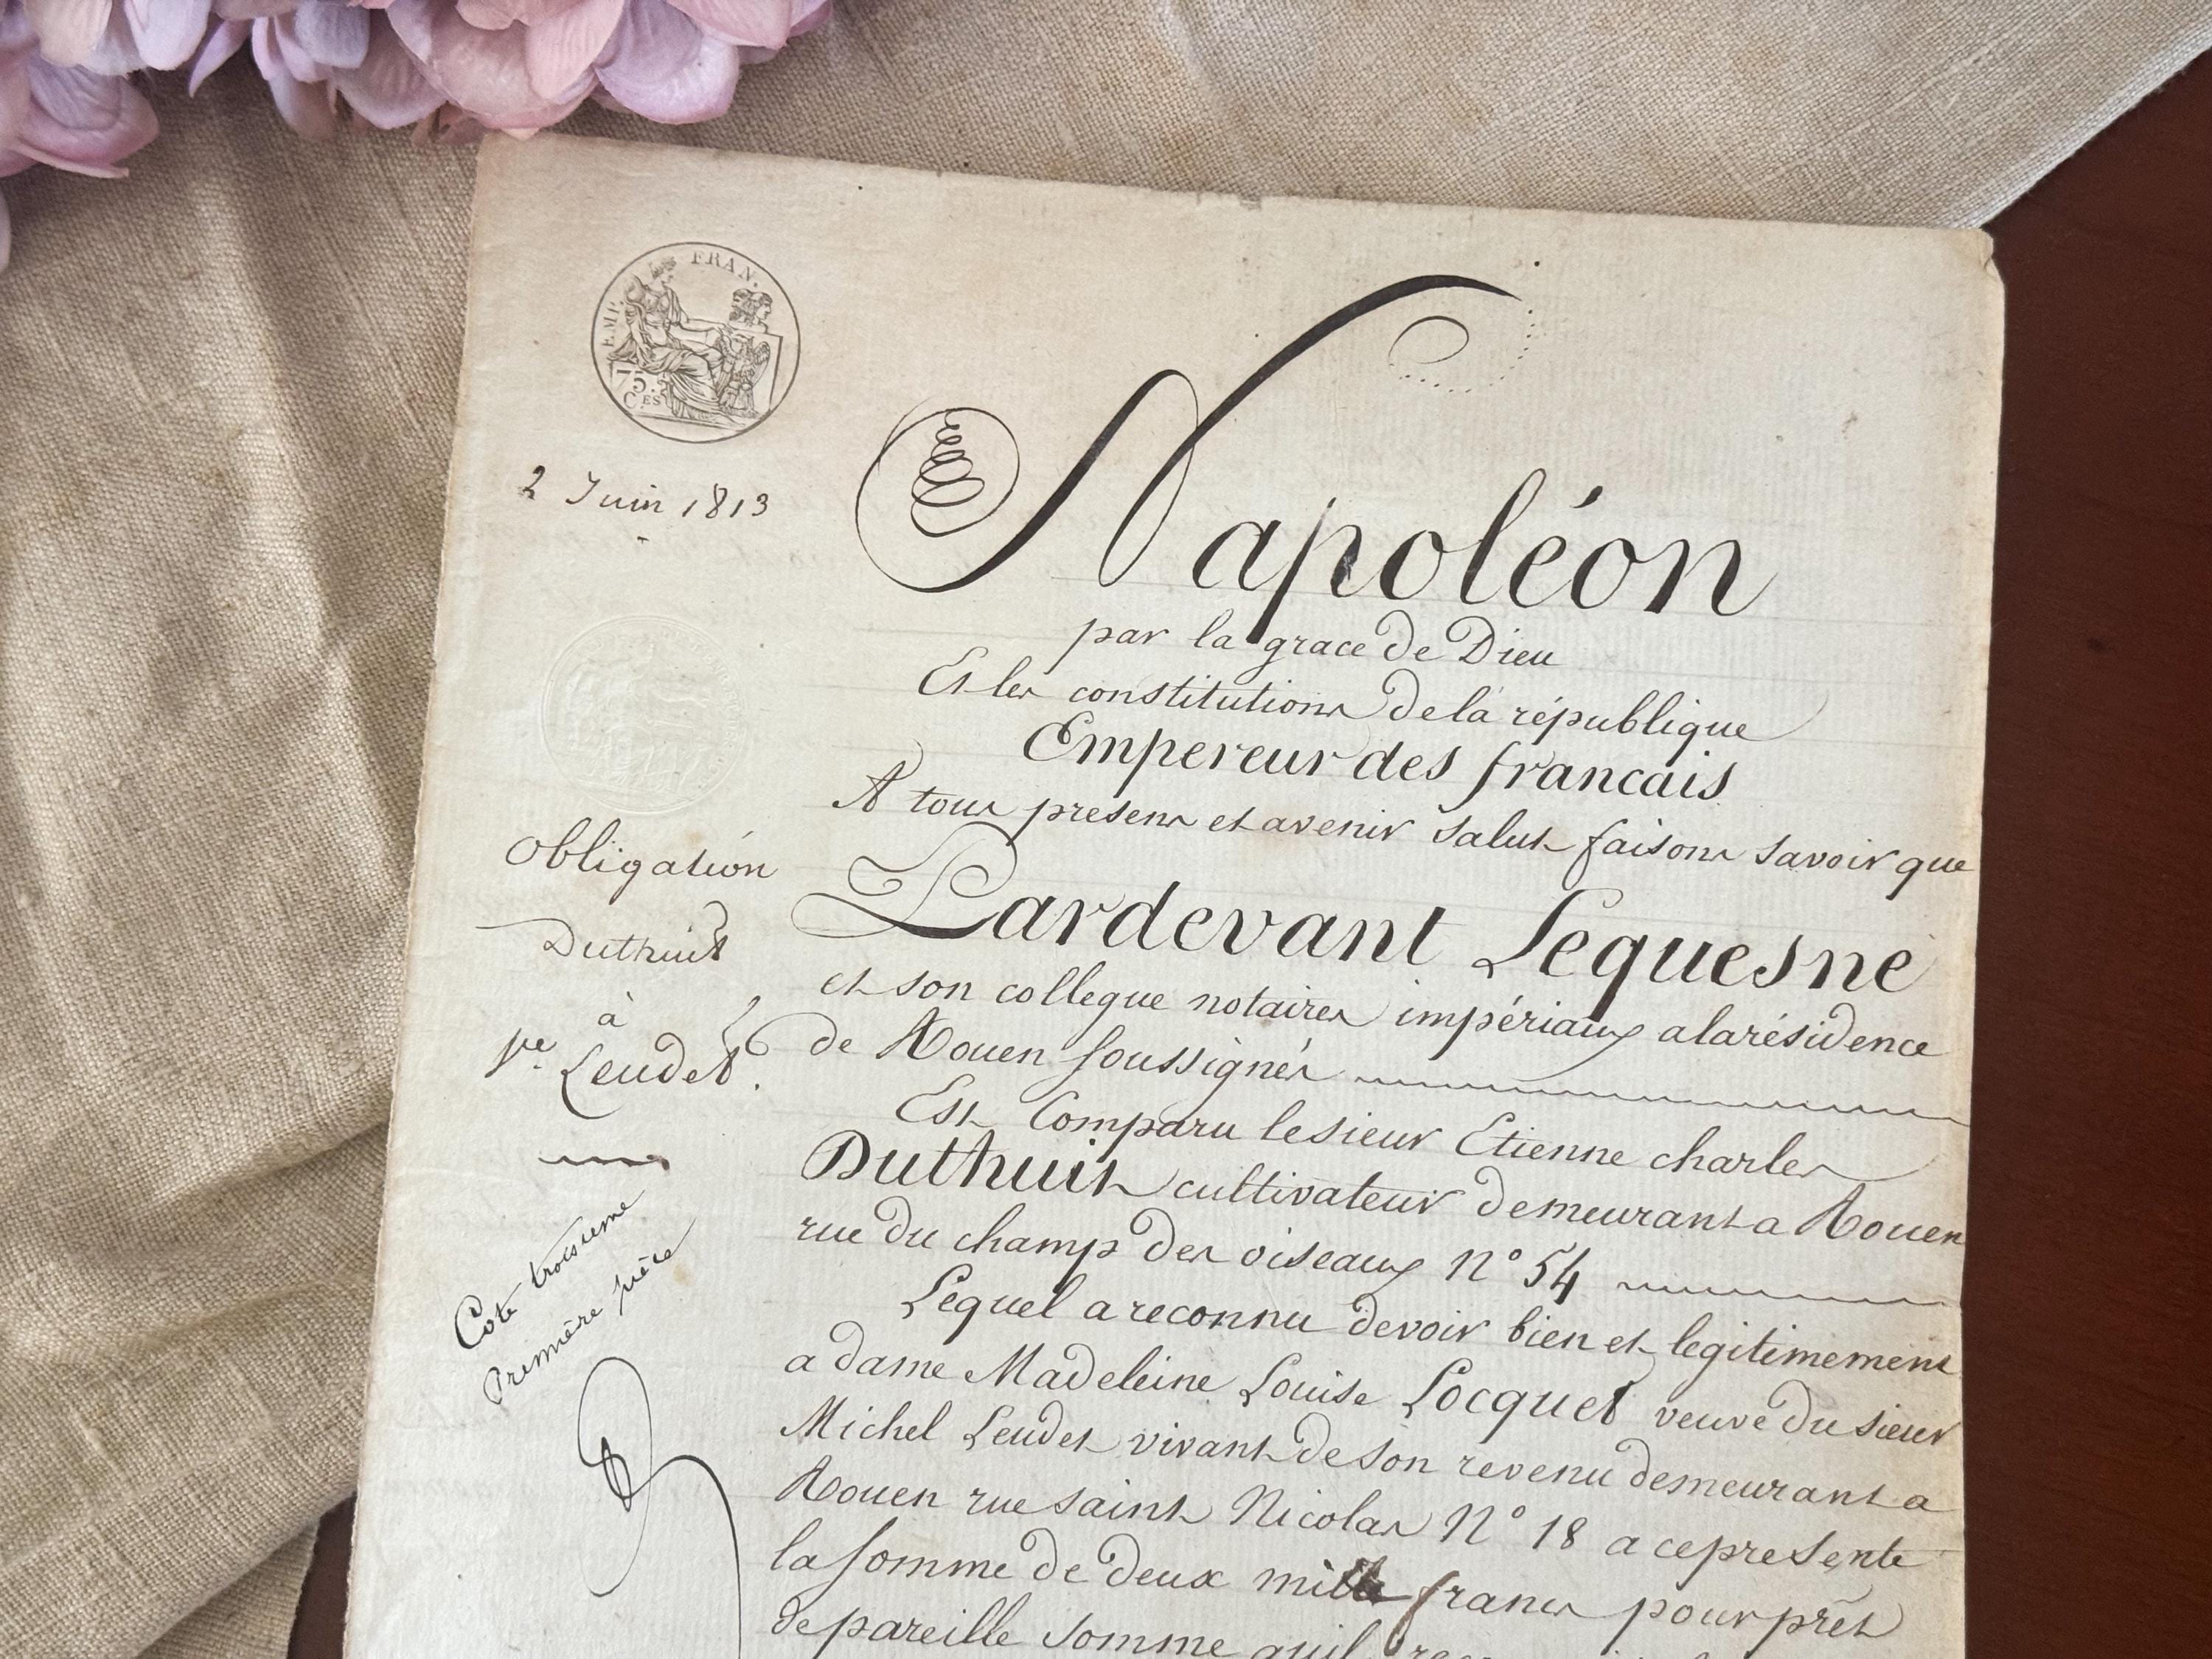 EMP. FRAN.
75.
C.ES
2 Juin 1813
Napoléon
par la grace de Dieu
Et les constitutions de la république
Empereur des francais
A tous presens et avenir salut faisons savoir que
Pardevant Lequesne
et son collegue notaires impériaux a la résidence
de Rouen soussignés
Est Comparu le sieur Etienne charles
Duthuit cultivateur demeurant a Rouen
rue du champ des oiseaux N° 54
Lequel a reconnu devoir bien et legitimement
a dame Madeleine Louise Locquet veuve du sieur
Michel Leudet vivant de son revenu demeurant a
Rouen rue saint Nicolas N° 18 a ce presente
la somme de deux mille francs pour prêt
de pareille somme quil
Obligation
Duthuit
à
ve. Leudet.
Cote troisieme
Premère pièce